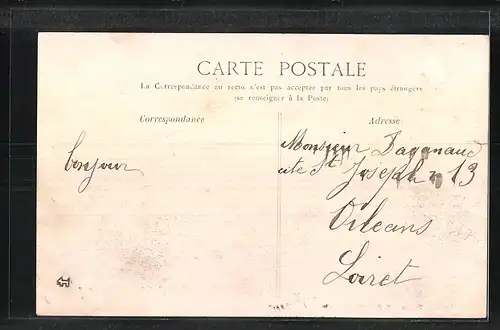 CARTE POSTALE
La Correspondance au recto n'est pas acceptée par tous les pays étrangers
(se renseigner à la Poste)
Correspondance
Adresse
bonjour
Monsieur Daganaud
cité St Joseph n 13
Orleans
Loiret